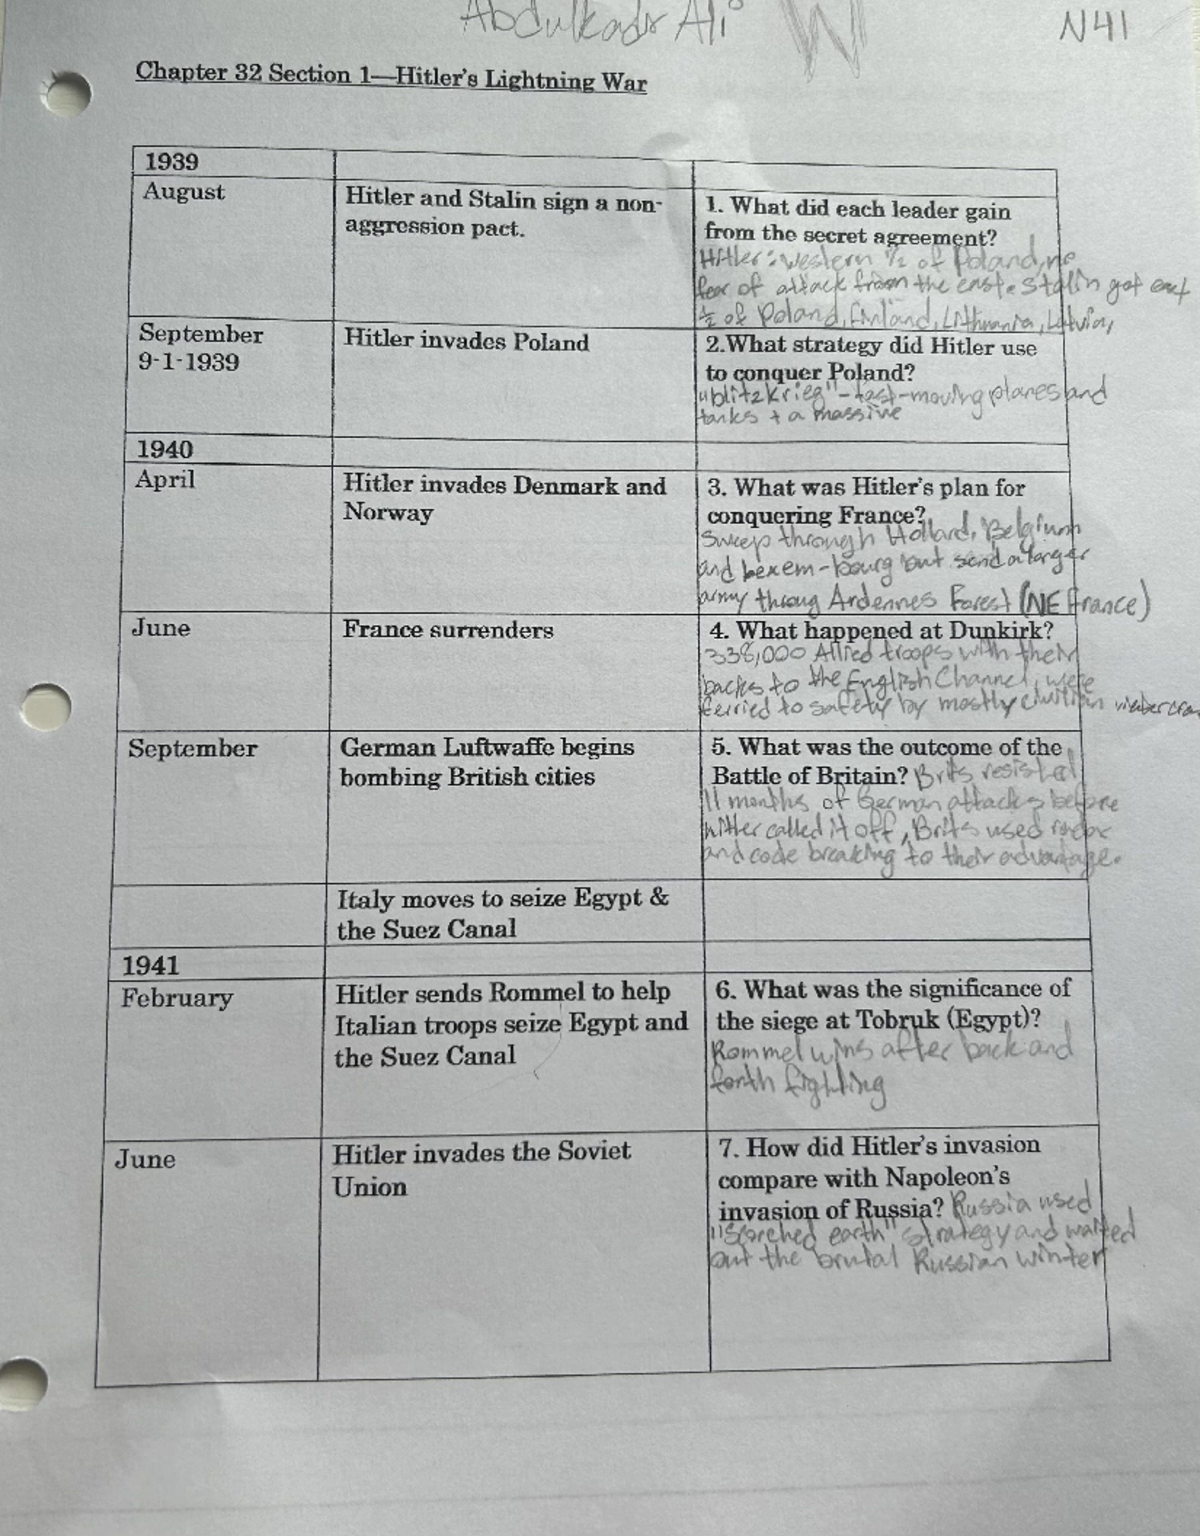 Abdulkadr Ali
N41
Chapter 32 Section 1—Hitler's Lightning War
1939
August
Hitler and Stalin sign a non-
aggression pact.
1. What did each leader gain
from the secret agreement?
Hitler: western 1/2 of Poland, no
fear of attack from the east. Stalin got east
1/2 of Poland, Finland, Lithuania, Latvia,
September
9-1-1939
Hitler invades Poland
2.What strategy did Hitler use
to conquer Poland?
"blitzkrieg" - fast-moving planes and
tanks + a massive
1940
April
Hitler invades Denmark and
Norway
3. What was Hitler's plan for
conquering France?
Sweep through Holland, Belgium
and bexem-bourg but send a larger
army throug Ardennes Forest (NE France)
June
France surrenders
4. What happened at Dunkirk?
338,000 Allied troops with their
backs to the English Channel, were
ferried to safety by mostly civilian
September
German Luftwaffe begins
bombing British cities
5. What was the outcome of the
Battle of Britain? Brits resisted
11 months of German attacks before
hitler called it off, Brits used radar
and code breaking to their advantage.
Italy moves to seize Egypt &
the Suez Canal
1941
February
Hitler sends Rommel to help
Italian troops seize Egypt and
the Suez Canal
6. What was the significance of
the siege at Tobruk (Egypt)?
Rommel wins after back and
forth fighting
June
Hitler invades the Soviet
Union
7. How did Hitler's invasion
compare with Napoleon's
invasion of Russia? Russia used
"Scorched earth" strategy and waited
out the brutal Russian winter